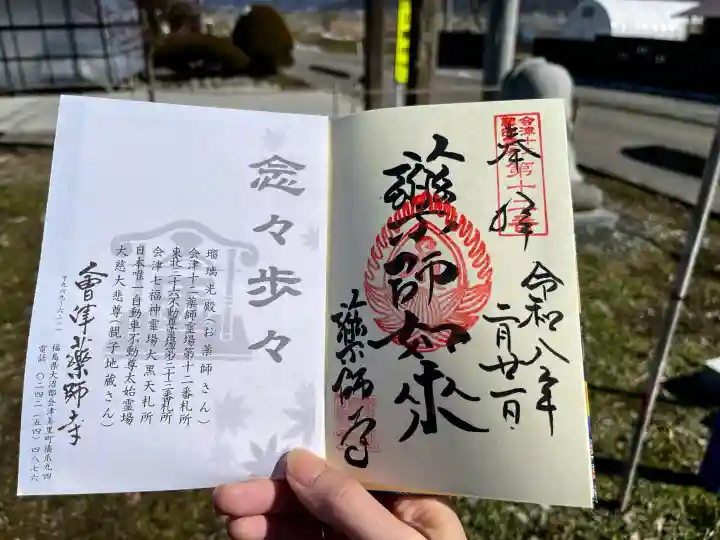 奉拝
令和八年
二月廿一日
薬師如来
薬師寺
念々歩々
瑠璃光殿(お薬師さん)
会津十二薬師霊場第十二番札所
東北三十六不動尊霊場第二十三番札所
会津七福神霊場大黒天札所
日本唯一自動車不動尊太始霊場
大慈大悲尊(親子地蔵さん)
會津薬師寺
福島県大沼郡会津美里町橋爪九四
電話 〇二四二(五四)四八七六